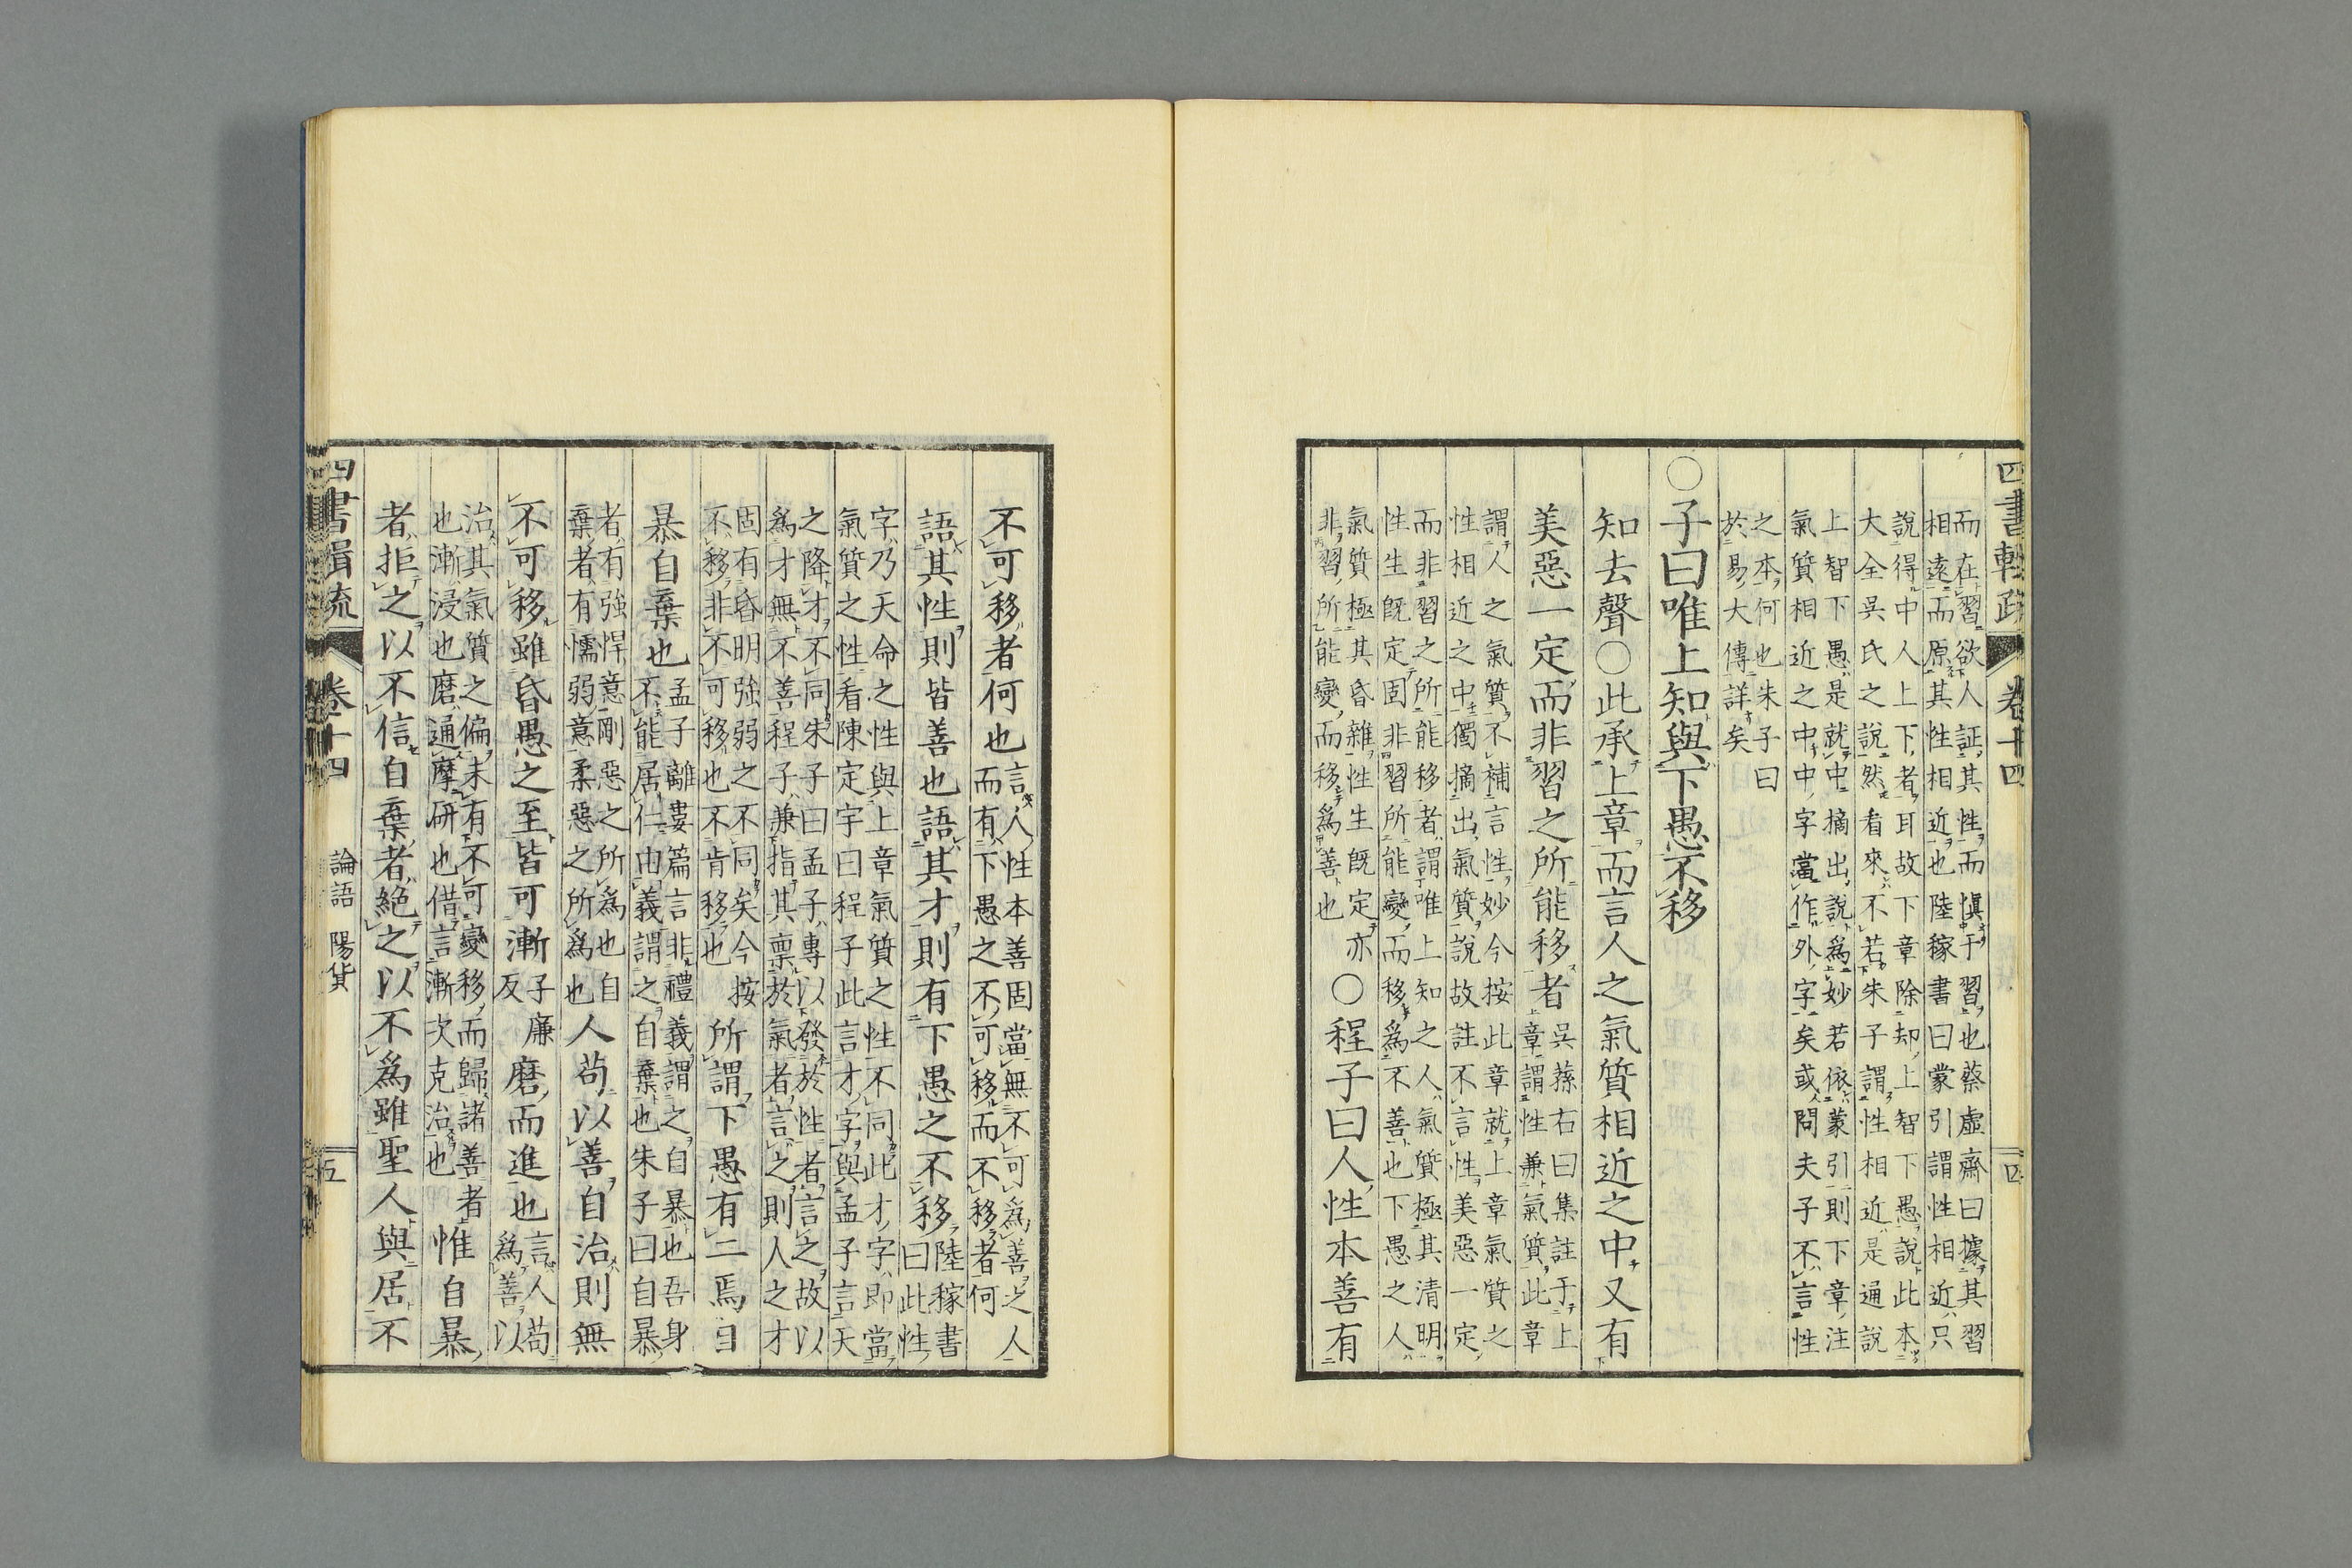 四書輯疏 卷十四 四
而在習欲人証其性而慎于習也蔡虛齋曰據其習
相遠而原其性相近也陸稼書曰蒙引謂性相近只
說得中人上下者耳故下章除却上智下愚說此本
大全吳氏之說然看來不若朱子謂性相近是通說
上智下愚是就中摘出說爲妙若依蒙引則下章注
氣質相近之中中字當作外字矣或問夫子不言性
之本何也朱子曰
於易大傳詳矣
○子曰唯上知與下愚不移
知去聲○此承上章而言人之氣質相近之中又有
美惡一定而非習之所能移者
吳蓀右曰集註于上
章謂性兼氣質此章
謂人之氣質不補言性妙今按此章就上章氣質之
性相近之中獨摘出氣質說故註不言性美惡一定
而非習之所能移者謂唯上知之人氣質極其清明
性生既定固非習所能變而移爲不善也下愚之人
氣質極其昏雜性生既定亦
非習所能變而移爲善也
○程子曰人性本善有
不可移者何也
言人性本善固當無不可爲善之人
而有下愚之不可移而不移者何
語其性則皆善也語其才則有下愚之不移
陸稼書
曰此性
字乃天命之性與上章氣質之性不同此才字卽當
氣質之性看陳定宇曰程子此言才字與孟子言天
之降才不同朱子曰孟子專以發於性者言之故以
爲才無不善程子兼指其禀於氣者言之則人之才
固有昏明強弱之不同矣今按
不移非不可移也不肯移也
所謂下愚有二焉自
暴自棄也
孟子離婁篇言非禮義謂之自暴也吾身
不能居仁由義謂之自棄也朱子曰自暴
者有強悍意剛惡之所爲也自
棄者有懦弱意柔惡之所爲也
人苟以善自治則無
不可移雖昏愚之至皆可漸
子廉
反
磨而進也
言人苟
爲善以
治其氣質之偏未有不可變移而歸諸善者
也漸浸也磨通摩研也借言漸次克治也
惟自暴
者拒之以不信自棄者絕之以不爲雖聖人與居不
四書輯疏 卷十四 論語 陽貨 五